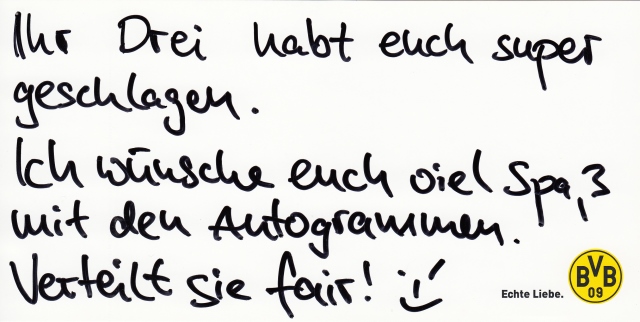 Ihr Drei habt euch super
geschlagen.
Ich wünsche euch viel Spaß
mit den Autogrammen.
Verteilt sie fair! :-)
Echte Liebe.
BVB
09